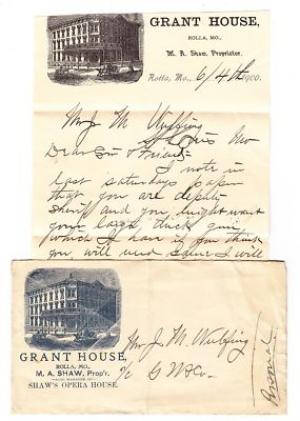 GRANT HOUSE,
ROLLA, MO.,
M. A. Shaw, Proprietor.
Rolla, Mo., 6/4th 1900.
Mr J. M Wulfing
St Louis Mo
Dear Sir & Friend
I note in
last saturdays paper
that you are deputy
sheriff and you might want
your large duck gun
which I have if you think
you will need same I will
GRANT HOUSE,
ROLLA, MO.
M. A. SHAW, Prop'r.
SHAW'S OPERA HOUSE.
Mr J. M. Wulfing
c/o G W & Co.
Personal